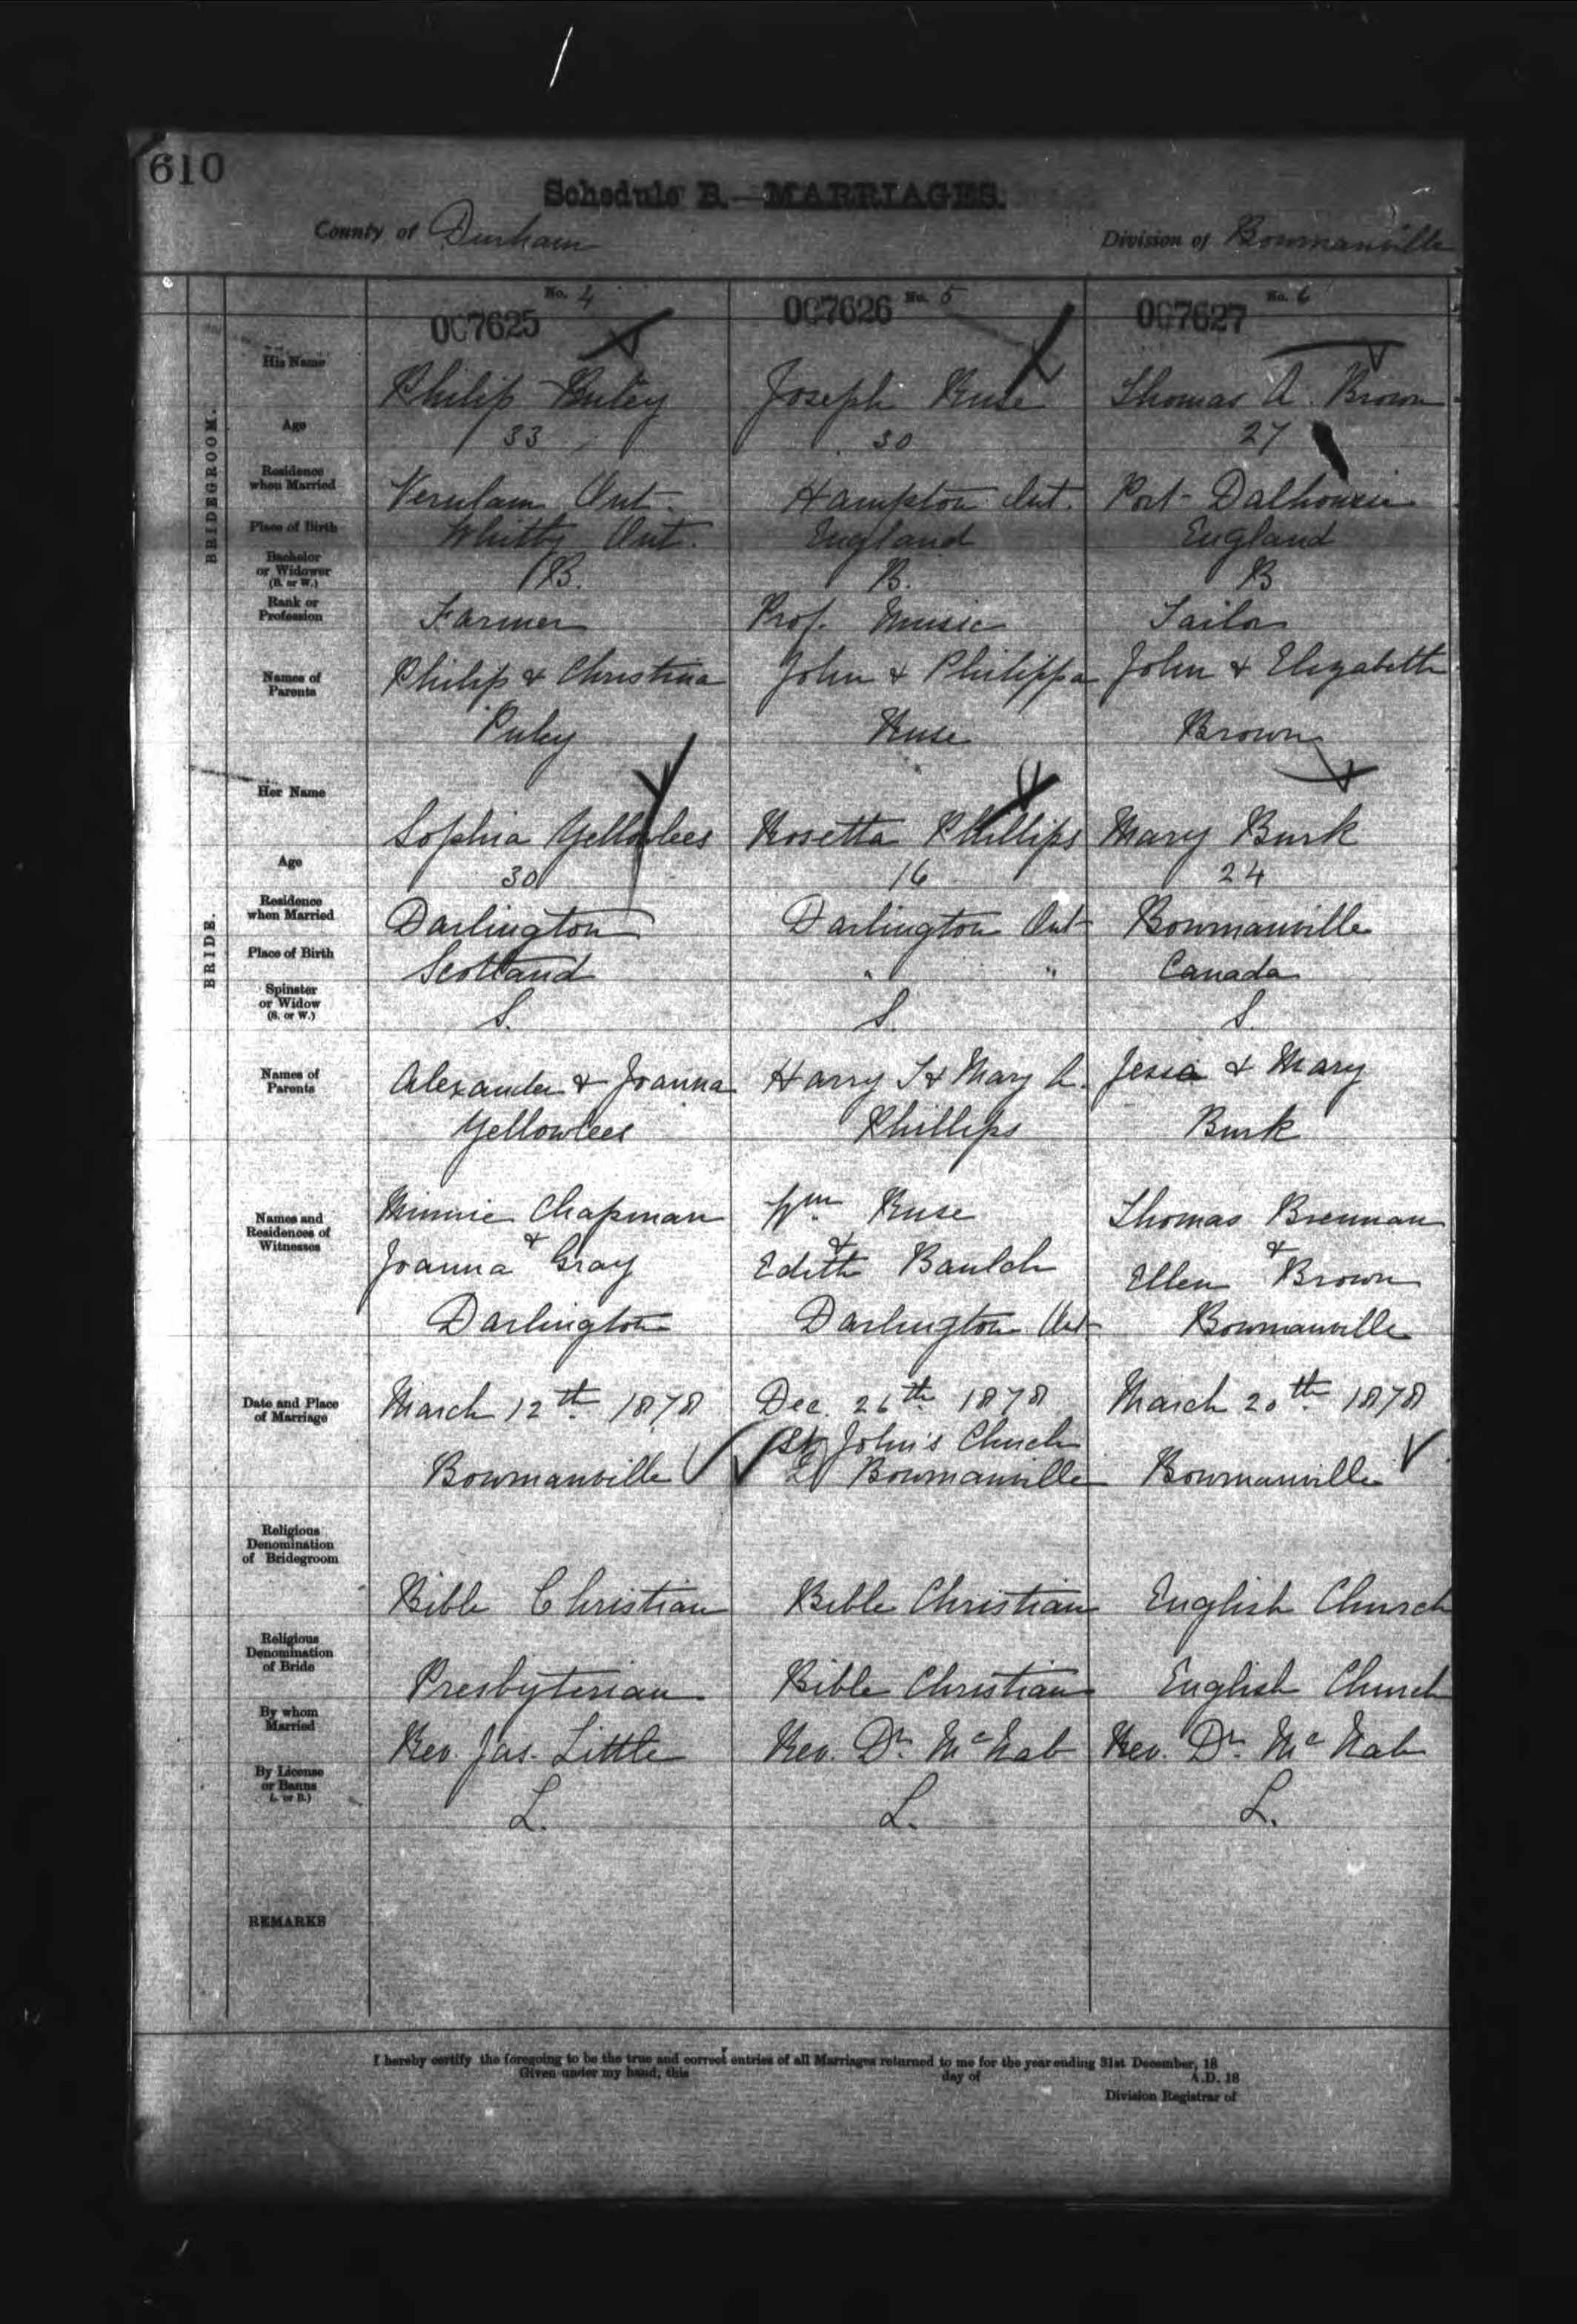 610
Schedule B.—MARRIAGES.
County of Durham
Division of Bowmanville
No. 4
No. 5
No. 6
007625
007626
007627
BRIDEGROOM.
His Name
Philip
Joseph Ruse
Thomas A. Brown
Age
33
30
27
Residence when Married
Verulam Ont.
Hampton Ont.
Port Dalhousie
Place of Birth
Whitby Ont.
England
England
Bachelor or Widower (B. or W.)
B.
B.
B
Rank or Profession
Farmer
Prof. Music
Tailor
Names of Parents
Philip & Christina
John & Philippa
John & Elizabeth
Ruse
Brown
BRIDE.
Her Name
Sophia Yellowlees
Rosetta Phillips
Mary Burk
Age
30
16
24
Residence when Married
Darlington
Darlington Ont
Bowmanville
Place of Birth
Scotland
" "
Canada
Spinster or Widow (S. or W.)
S.
S.
S.
Names of Parents
Alexander & Joanna
Harry T & Mary A.
& Mary
Yellowlees
Phillips
Burk
Names and Residences of Witnesses
Minnie Chapman
Wm. Ruse
Thomas Brennan
&
&
&
Joanna Gray
Edith
Ellen Brown
Darlington
Darlington Ont
Bowmanville
Date and Place of Marriage
March 12th. 1878
Dec. 26th. 1878
March 20th. 1878
St John's Church
Bowmanville
Bowmanville
Bowmanville
Religious Denomination of Bridegroom
Bible Christian
Bible Christian
English Church
Religious Denomination of Bride
Presbyterian
Bible Christian
English Church
By whom Married
Rev. Jas. Little
Rev. Dr. McNab
Rev. Dr. McNab
By License or Banns (L. or B.)
L.
L.
L.
REMARKS
I hereby certify the foregoing to be the true and correct entries of all Marriages returned to me for the year ending 31st December, 18
Given under my hand, this day of A.D. 18
Division Registrar of